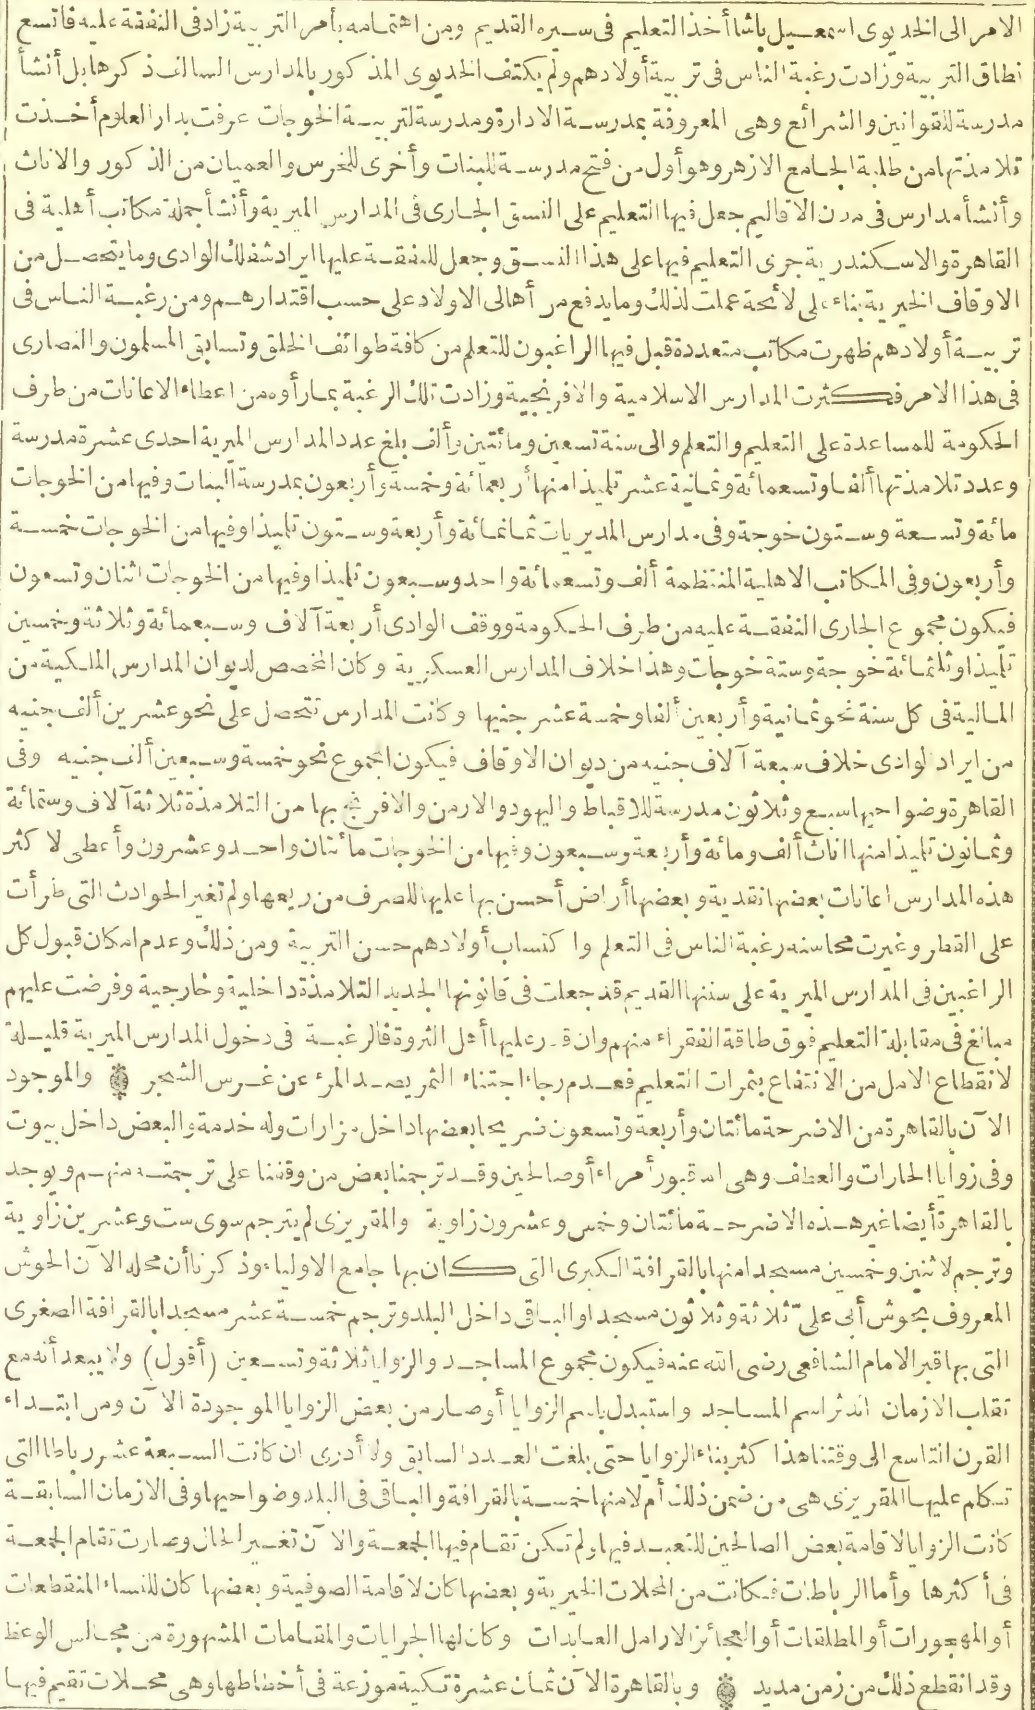 الامر الى الخديوى اسمعيل باشا أخذ التعليم فى سيره القديم ومن اهتمامه بأمر التربية زاد فى النفقة عليه فاتسع
نطاق التربية وزادت رغبة الناس فى تربية أولادهم ولم يكتف الخديوى المذكور بالمدارس السالف ذكرها بل أنشأ
مدرسة للقوانين والشرائع وهى المعروفة بمدرسة الادارة ومدرسة لتربية الخوجات عرفت بدار العلوم أخذت
تلامذتها من طلبة الجامع الازهر وهو أول من فتح مدرسة للبنات وأخرى للخرس والعميان من الذكور والاناث
وأنشأ مدارس فى مدن الاقاليم جعل فيها التعليم على النسق الجارى فى المدارس الميرية وأنشأ جملة مكاتب أهلية فى
القاهرة والاسكندرية جرى التعليم فيها على هذا النسق وجعل للنفقة عليها ايراد شفلك الوادى وما يتحصل من
الاوقاف الخيرية بناء على لائحة عملت لذلك وما يدفع من أهالى الاولاد على حسب اقتدارهم ومن رغبة الناس فى
تربية أولادهم ظهرت مكاتب متعددة قبل فيها الراغبون للتعلم من كافة طوائف الخلق وتسابق المسلمون والنصارى
فى هذا الامر فكثرت المدارس الاسلامية والافرنجية وزادت تلك الرغبة بما رأوه من اعطاء الاعانات من طرف
الحكومة للمساعدة على التعليم والتعلم والى سنة تسعين ومائتين وألف بلغ عدد المدارس الميرية احدى عشرة مدرسة
وعدد تلامذتها ألفا وتسعمائة وثمانية عشر تلميذا منها أربعمائة وخمسة وأربعون بمدرسة البنات وفيها من الخوجات
مائة وتسعة وستون خوجة وفى مدارس المديريات ثمانمائة وأربعة وستون تلميذا وفيها من الخوجات خمسة
وأربعون وفى المكاتب الاهلية المنتظمة ألف وتسعمائة واحد وسبعون تلميذا وفيها من الخوجات اثنان وتسعون
فيكون مجموع الجارى النفقة عليه من طرف الحكومة ووقف الوادى أربعة آلاف وسبعمائة وثلاثة وخمسين
تلميذا وثلثمائة خوجة وستة خوجات وهذا خلاف المدارس العسكرية وكان المخصص لديوان المدارس الملكية من
المالية فى كل سنة نحو ثمانية وأربعين ألفا وخمسة عشر جنيها وكانت المدارس تتحصل على نحو عشرين ألف جنيه
من ايراد الوادى خلاف سبعة آلاف جنيه من ديوان الاوقاف فيكون المجموع نحو خمسة وسبعين ألف جنيه وفى
القاهرة وضواحيها سبع وثلاثون مدرسة للاقباط واليهود والارمن والافرنج بها من التلامذة ثلاثة آلاف وستمائة
وثمانون تلميذا منها اناث ألف ومائة وأربعة وسبعون وفيها من الخوجات مائتان واحد وعشرون وأعطى لاكثر
هذه المدارس اعانات بعضها نقدية وبعضها أراض أحسن بها عليها للصرف من ريعها ولم تغير الحوادث التى طرأت
على القطر وغيرت محاسنه رغبة الناس فى التعلم واكتساب أولادهم حسن التربية ومن ذلك وعدم امكان قبول كل
الراغبين فى المدارس الميرية على سننها القديم قد جعلت فى قانونها الجديد التلامذة داخلية وخارجية وفرضت عليهم
مبالغ فى مقابلة التعليم فوق طاقة الفقراء منهم وان قدر عليها أهل الثروة فالرغبة فى دخول المدارس الميرية قليلة
لانقطاع الامل من الانتفاع بثمرات التعليم فعدم رجاء اجتناء الثمر يصد المرء عن غرس الشجر والموجود
الآن بالقاهرة من الاضرحة مائتان وأربعة وتسعون ضريحا بعضها داخل مزارات وله خدمة والبعض داخل بيوت
وفى زوايا الحارات والعطف وهى اما قبور أمراء أو صالحين وقد ترجمنا بعض من وقفنا على ترجمته منهم ويوجد
بالقاهرة أيضا غير هذه الاضرحة مائتان وخمس وعشرون زاوية والمقريزى لم يترجم سوى ست وعشرين زاوية
وترجم لاثنين وخمسين مسجدا منها بالقرافة الكبرى التى كان بها جامع الاولياء وذكرنا أن محله الآن الحوش
المعروف بحوش أبى على ثلاثة وثلاثون مسجدا والباقى داخل البلد وترجم خمسة عشر مسجدا بالقرافة الصغرى
التى بها قبر الامام الشافعى رضى الله عنه فيكون مجموع المساجد والزوايا ثلاثة وتسعين (أقول) ولا يبعد أنه مع
تقلب الازمان اندثر اسم المساجد واستبدل باسم الزوايا أو صار من بعض الزوايا الموجودة الآن ومن ابتداء
القرن التاسع الى وقتنا هذا كثر بناء الزوايا حتى بلغت العدد السابق ولا أدرى ان كانت السبعة عشر رباطا التى
تكلم عليها المقريزى هى من ضمن ذلك أم لا منها خمسة بالقرافة والباقى فى البلد وضواحيها وفى الازمان السابقة
كانت الزوايا لاقامة بعض الصالحين للتعبد فيها ولم تكن تقام فيها الجمعة والآن تغير الحال وصارت تقام الجمعة
فى أكثرها وأما الرباطات فكانت من المحلات الخيرية وبعضها كان لاقامة الصوفية وبعضها كان للنساء المنقطعات
أو المهجورات أو المطلقات أو العجائز الارامل العابدات وكان لها الجرايات والمقامات المشهورة من مجالس الوعظ
وقد انقطع ذلك من زمن مديد وبالقاهرة الآن ثمان عشرة تكية موزعة فى أخطاطها وهى محلات تقيم فيها